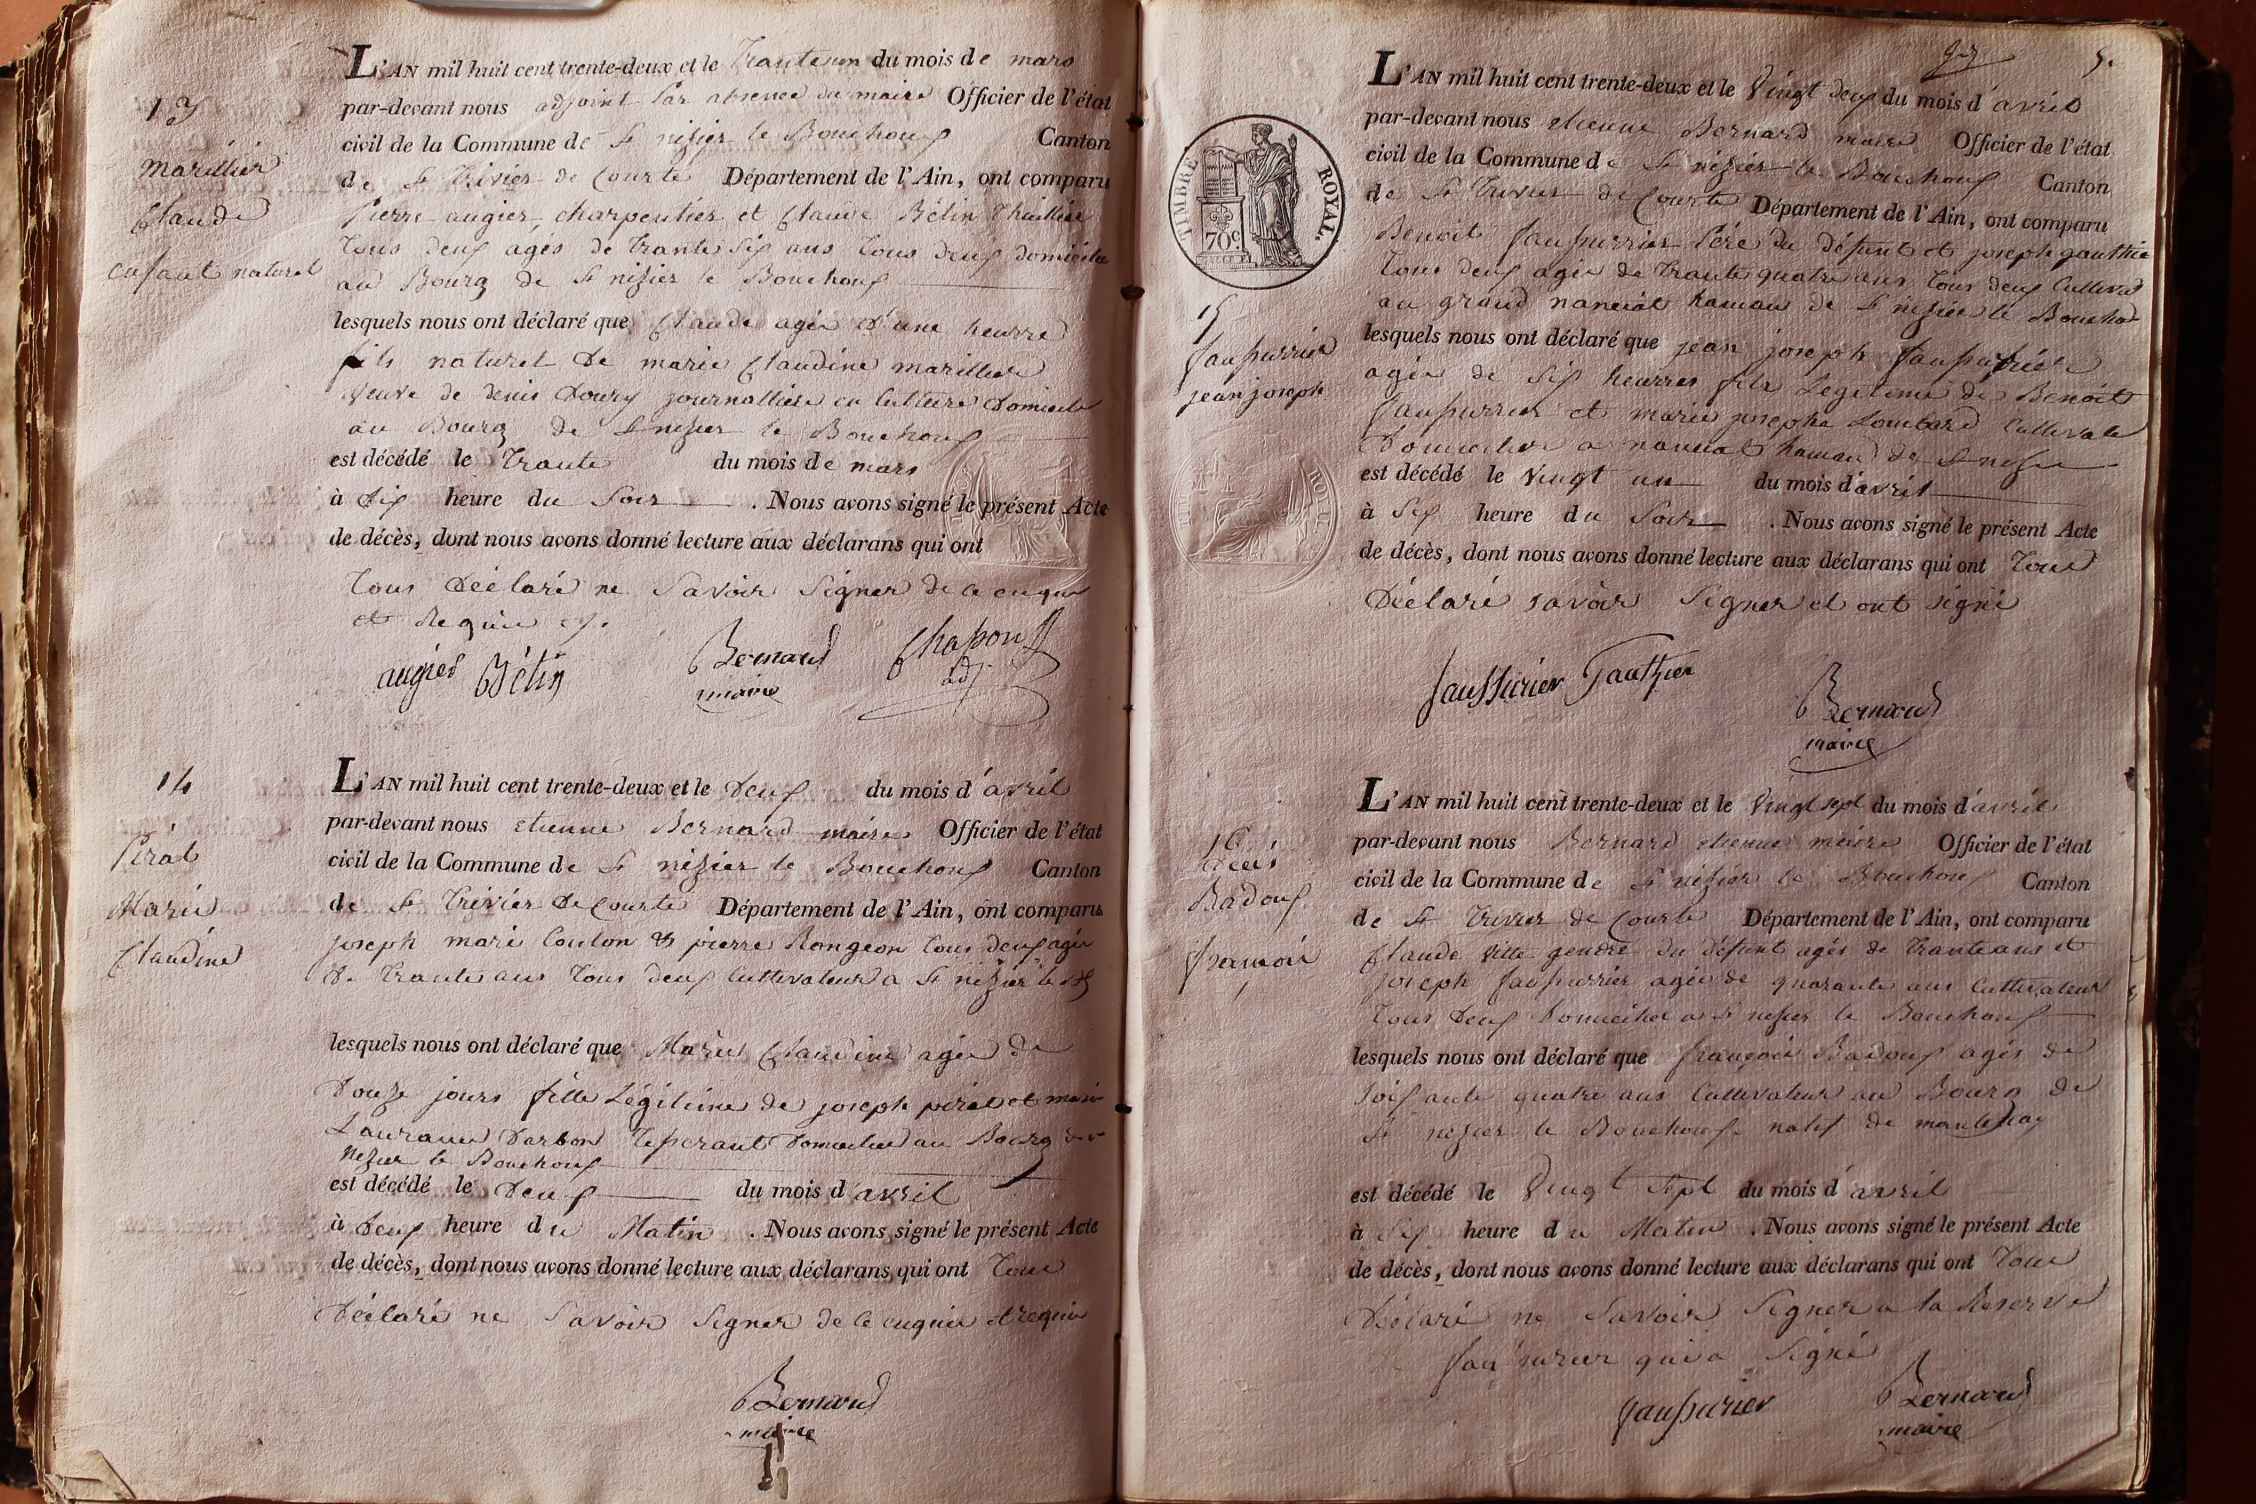 13
Marillier
Claude
enfant naturel
L'AN mil huit cent trente-deux et le Trante un du mois de mars
par-devant nous adjoint Par absence du maire Officier de l'état
civil de la Commune de St nizier le Bouchoux Canton
de St Trivier de Courte Département de l'Ain, ont comparu
Pierre augier charpentier et Claude Bélin Thuillier
tous deux agés de trante six ans tous deux domicilie
au Bourg de St nizier le Bouchoux
lesquels nous ont déclaré que Claude agée d'une heurre
fils naturel de marie Claudine marillier
veuve de denis Doury journallière en Culture Domicile
au Bourg de St nizier le Bouchoux
est décédé le Trante du mois de mars
à Dix heure du Soir . Nous avons signé le présent Acte
de décès, dont nous avons donné lecture aux déclarans qui ont
tous Déclaré ne Savoir Signer de ce enquis
et Requis
augier Bélin Bernard maire Chapon adj
14
Pirat
Marie
Claudine
L'AN mil huit cent trente-deux et le Deux du mois d'avril
par-devant nous etienne Bernard maire Officier de l'état
civil de la Commune de St nizier le Bouchoux Canton
de St Trivier de Courte Département de l'Ain, ont comparu
joseph marie Coulon & pierre Rongeon tous deux agée
de trante ans tous deux Cultivateur a St nizier le Bx
lesquels nous ont déclaré que Marie Claudine agée de
Douze jours fille Légitime de joseph pirat et marie
Darbon Tisserant Domicilie au Bourg de St
nizier le Bouchoux
est décédé le Deux du mois d'avril
à Deux heure du Matin . Nous avons signé le présent Acte
de décès, dont nous avons donné lecture aux déclarans qui ont Tous
Déclaré ne Savoir Signer de ce enquis et requis
Bernard
maire
5.
TIMBRE ROYAL.
70c
15
faussurrier
jean joseph
L'AN mil huit cent trente-deux et le Vingt deux du mois d'avril
par-devant nous etienne Bernard maire Officier de l'état
civil de la Commune de St nizier le Bouchoux Canton
de St Trivier de Courte Département de l'Ain, ont comparu
Benoit faussurrier Père du défunt et joseph gauthier
tous deux agée de trante quatre ans tous deux Cultivat
au grand nanciat hamau de St nizier le Bouchoux
lesquels nous ont déclaré que jean joseph faussurrier
agée de Six heurres fils Légitime de Benoit
faussurrier et marie josephe Lombard Cultivate
Domicilie a nanciat hamau de St nizier
est décédé le Vingt un du mois d'avril
à Six heure du Soir . Nous avons signé le présent Acte
de décès, dont nous avons donné lecture aux déclarans qui ont Tous
Déclaré savoir Signer et ont signé
faussurier Gauthier
Bernard
maire
16
Décès
Badoux
françois
L'AN mil huit cent trente-deux et le Vingt sept du mois d'avril
par-devant nous Bernard etienne maire Officier de l'état
civil de la Commune de St nizier le Bouchoux Canton
de St Trivier de Courte Département de l'Ain, ont comparu
Claude Vitte gendre du défunt agés de trante ans et
joseph faussurrier agée de quarante ans Cultivateur
tous Deux Domicilie a St nizier le Bouchoux
lesquels nous ont déclaré que françois Badoux agés de
soixante quatre ans Cultivateur au Bourg de
St nizier le Bouchoux natif de mantenay
est décédé le Vingt sept du mois d'avril
à Six heure du Matin . Nous avons signé le présent Acte
de décès, dont nous avons donné lecture aux déclarans qui ont Tous
Déclaré ne Savoir Signer a la Reserve
de faussurier qui a Signé
faussurier Bernard
maire